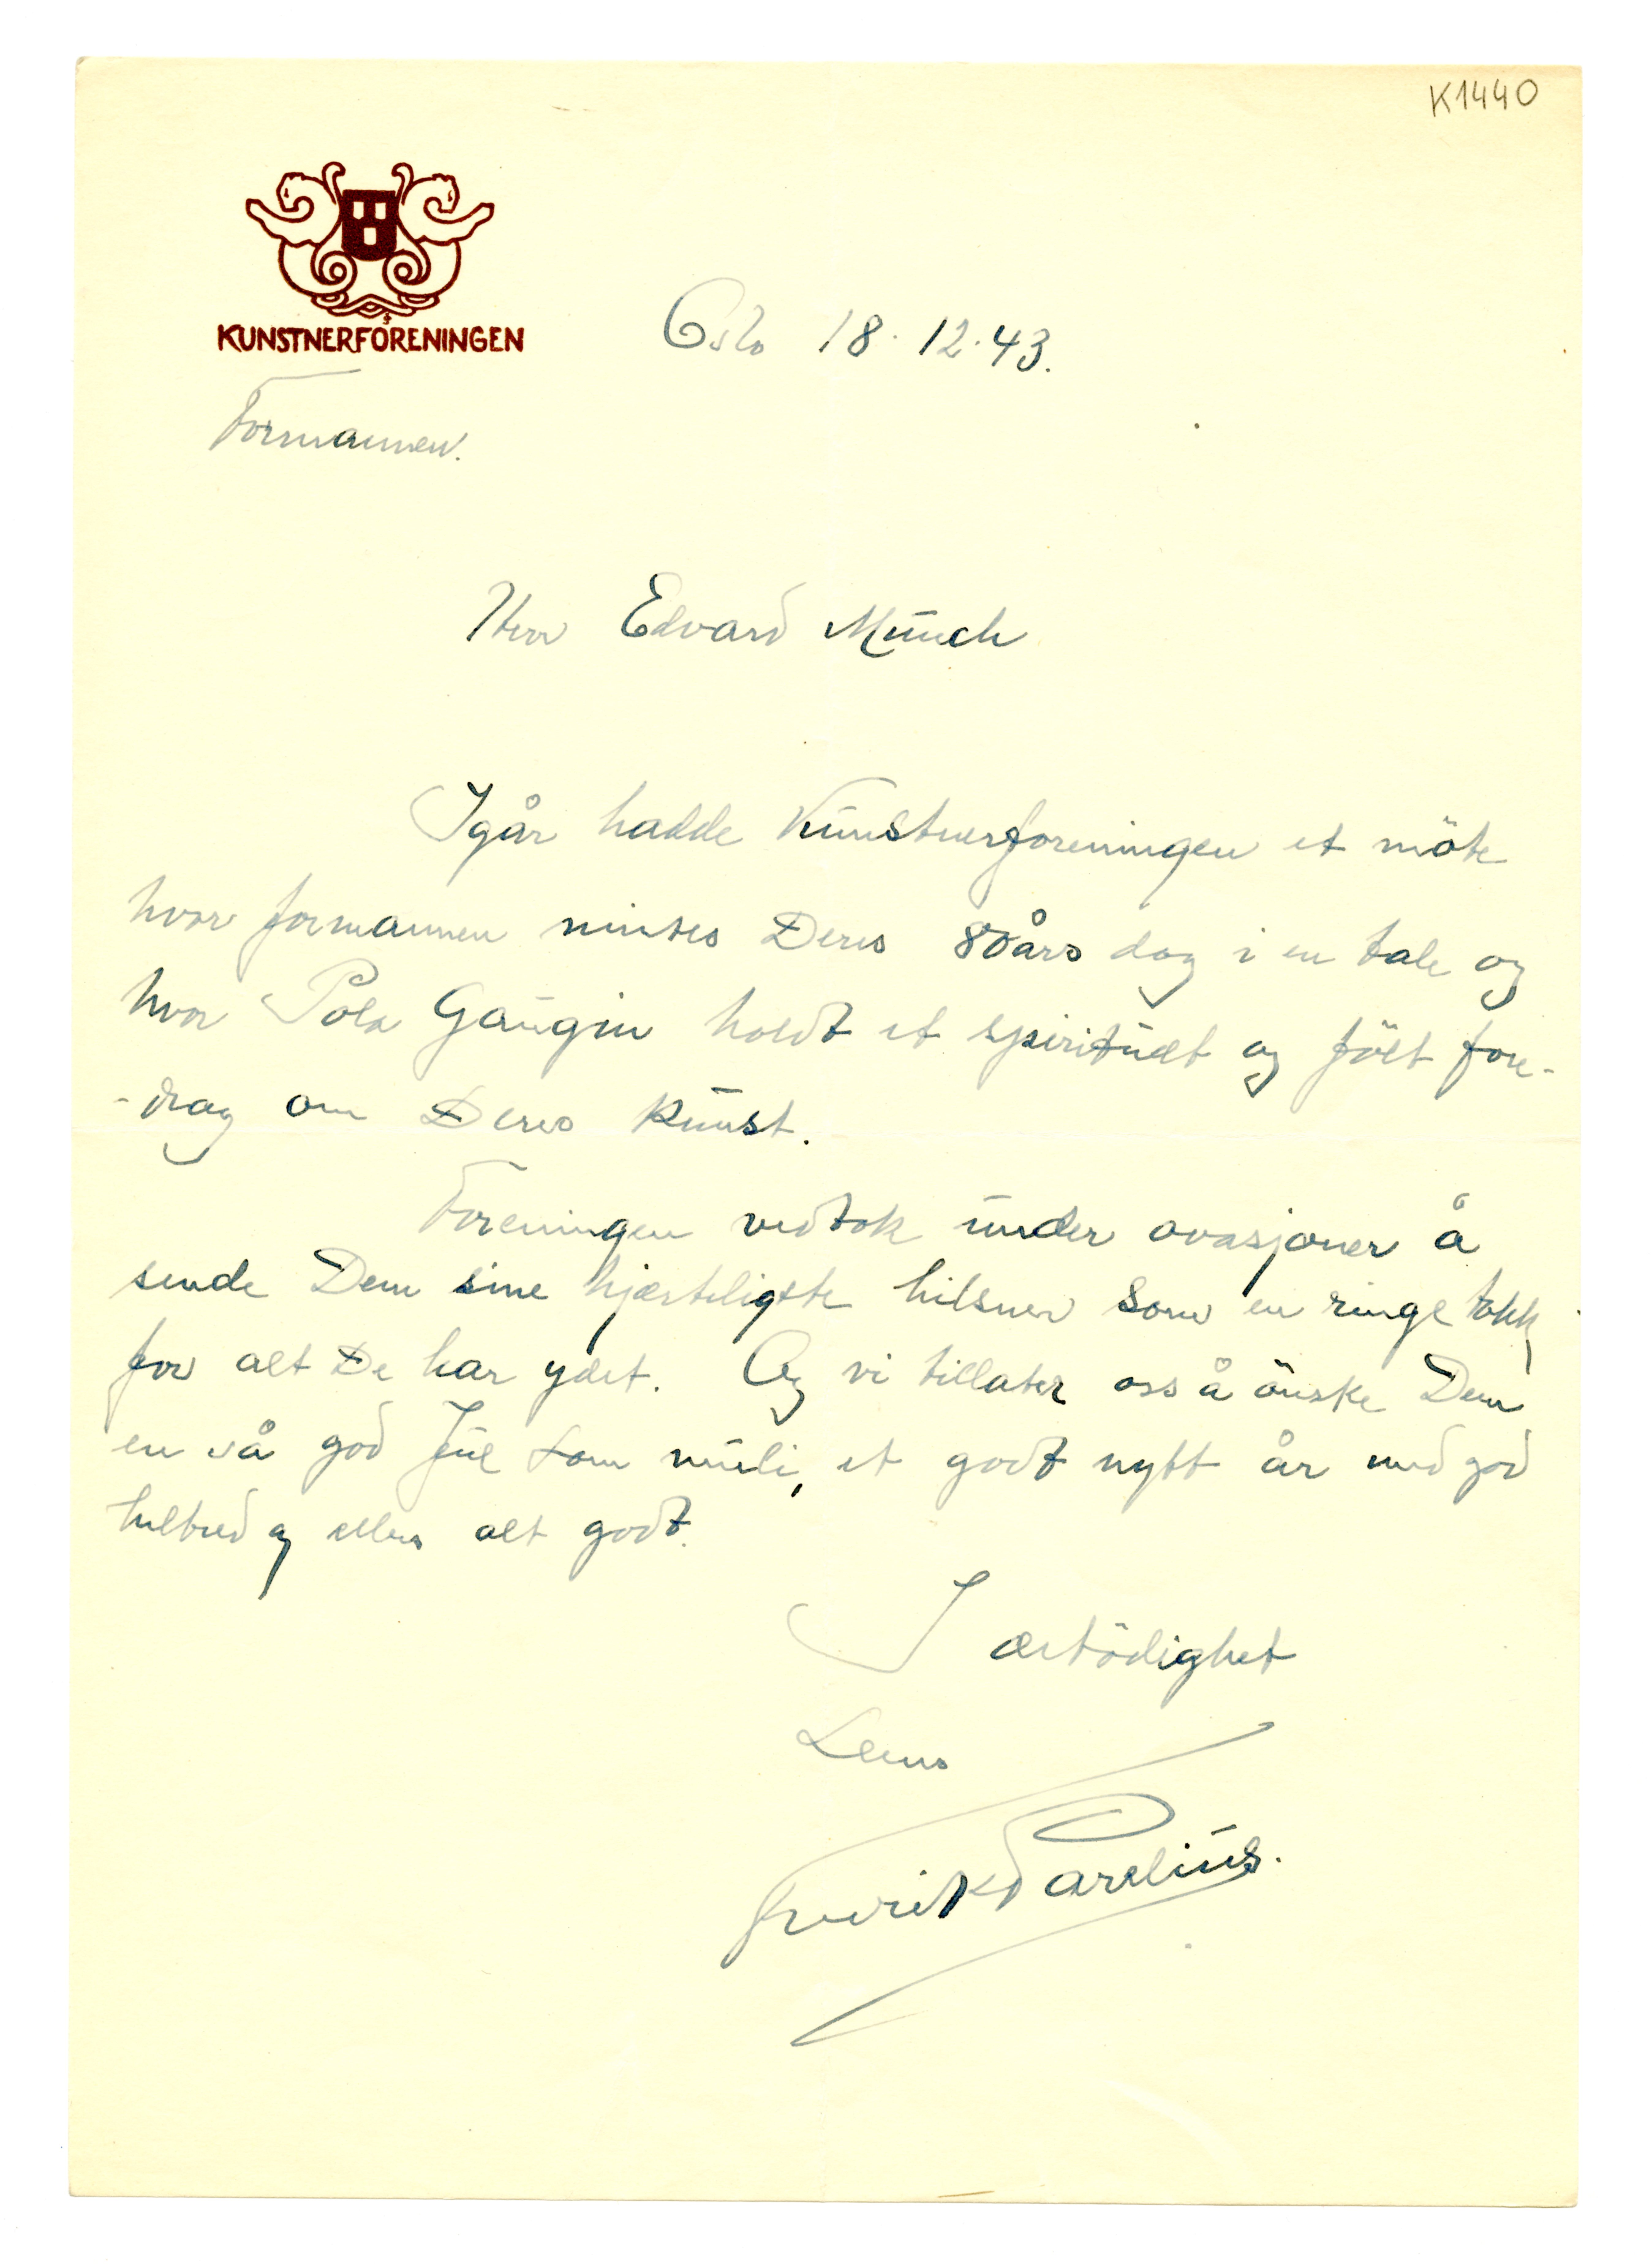 K1440
KUNSTNERFORENINGEN
Oslo 18.12.43.
Formannen.
Herr Edvard Munch
Igår hadde Kunstnerforeningen et möte
hvor formannen mintes Deres 80års dag i en tale og
hvor Pola Gaugin holdt et spirituelt og fölt fore-
-drag om Deres Kunst.
Foreningen vedtok under ovasjoner å
sende Dem sine hjerteligste hilsner som en ringe takk
for alt De har ydet. Og vi tillater oss å önske Dem
en så god Jul som muli, et godt nytt år med god
helbred og ellers alt godt.
I ærbödighet
Deres
Fredrik Parelius.